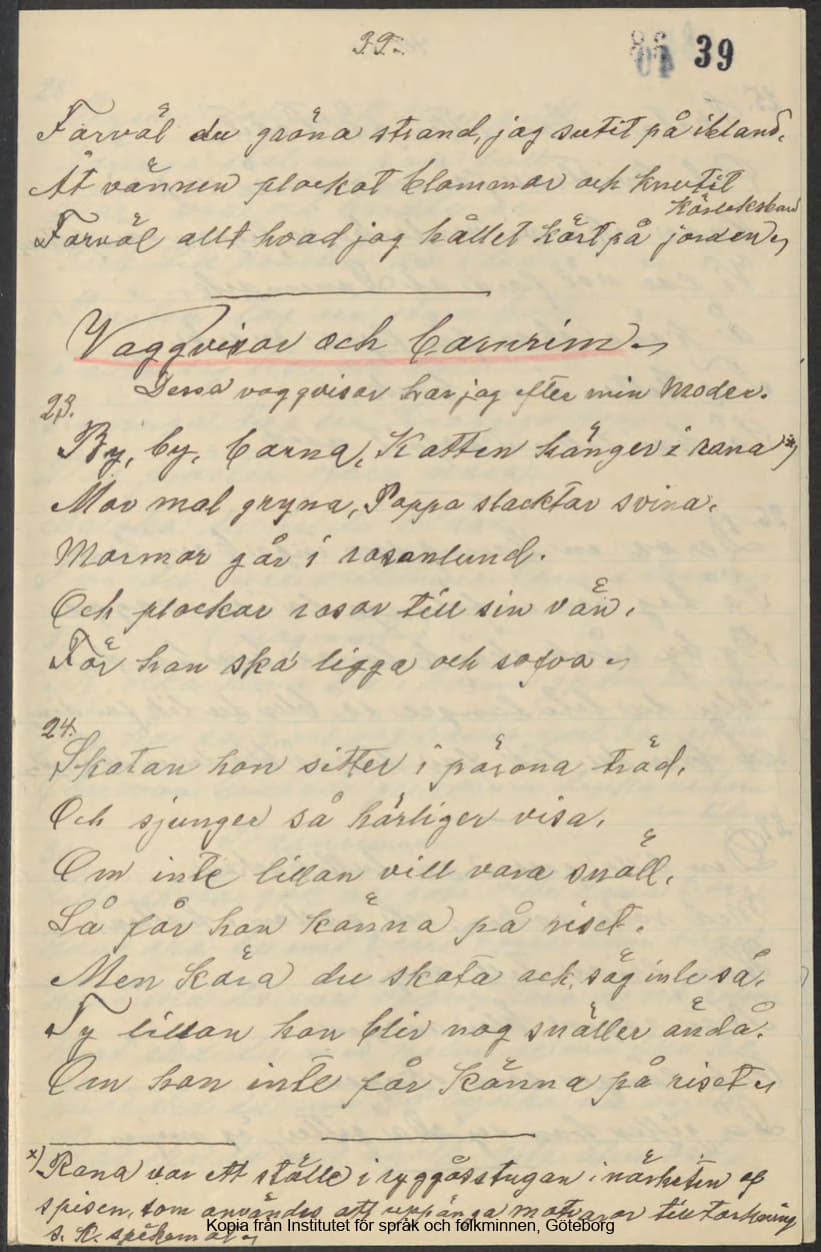 39
Farväl du gröna strand, jag sutit på ibland.
Åt vännen plockat blommor och knutit
kärleksband
Farväl allt hvad jag hållet kärt på jorden.
Vaggvisor och barnrim.
Dessa vaggvisor har jag efter min Moder.
23.
By, by, barna, Katten hänger i rana x)
Mor mal gryna, Pappa slacktar svina.
Mormor går i rosenlund.
Och plockar rosor till sin vän.
För han ska ligga och sofva.
24.
Skatan hon sitter i pärona träd.
Och sjunger så härliger visa.
Om inte lillan vill vara snäll.
Så får hon känna på riset.
Men kära du skata ack, säg inte så.
Ty lillan hon blir nog snäller ändå.
Om hon inte får känna på riset.
x) Rana var ett ställe i ryggåsstugan i närheten af
spisen, som användes att upphänga matvaror till torkning
s. k. spickemat.
Kopia från Institutet för språk och folkminnen, Göteborg